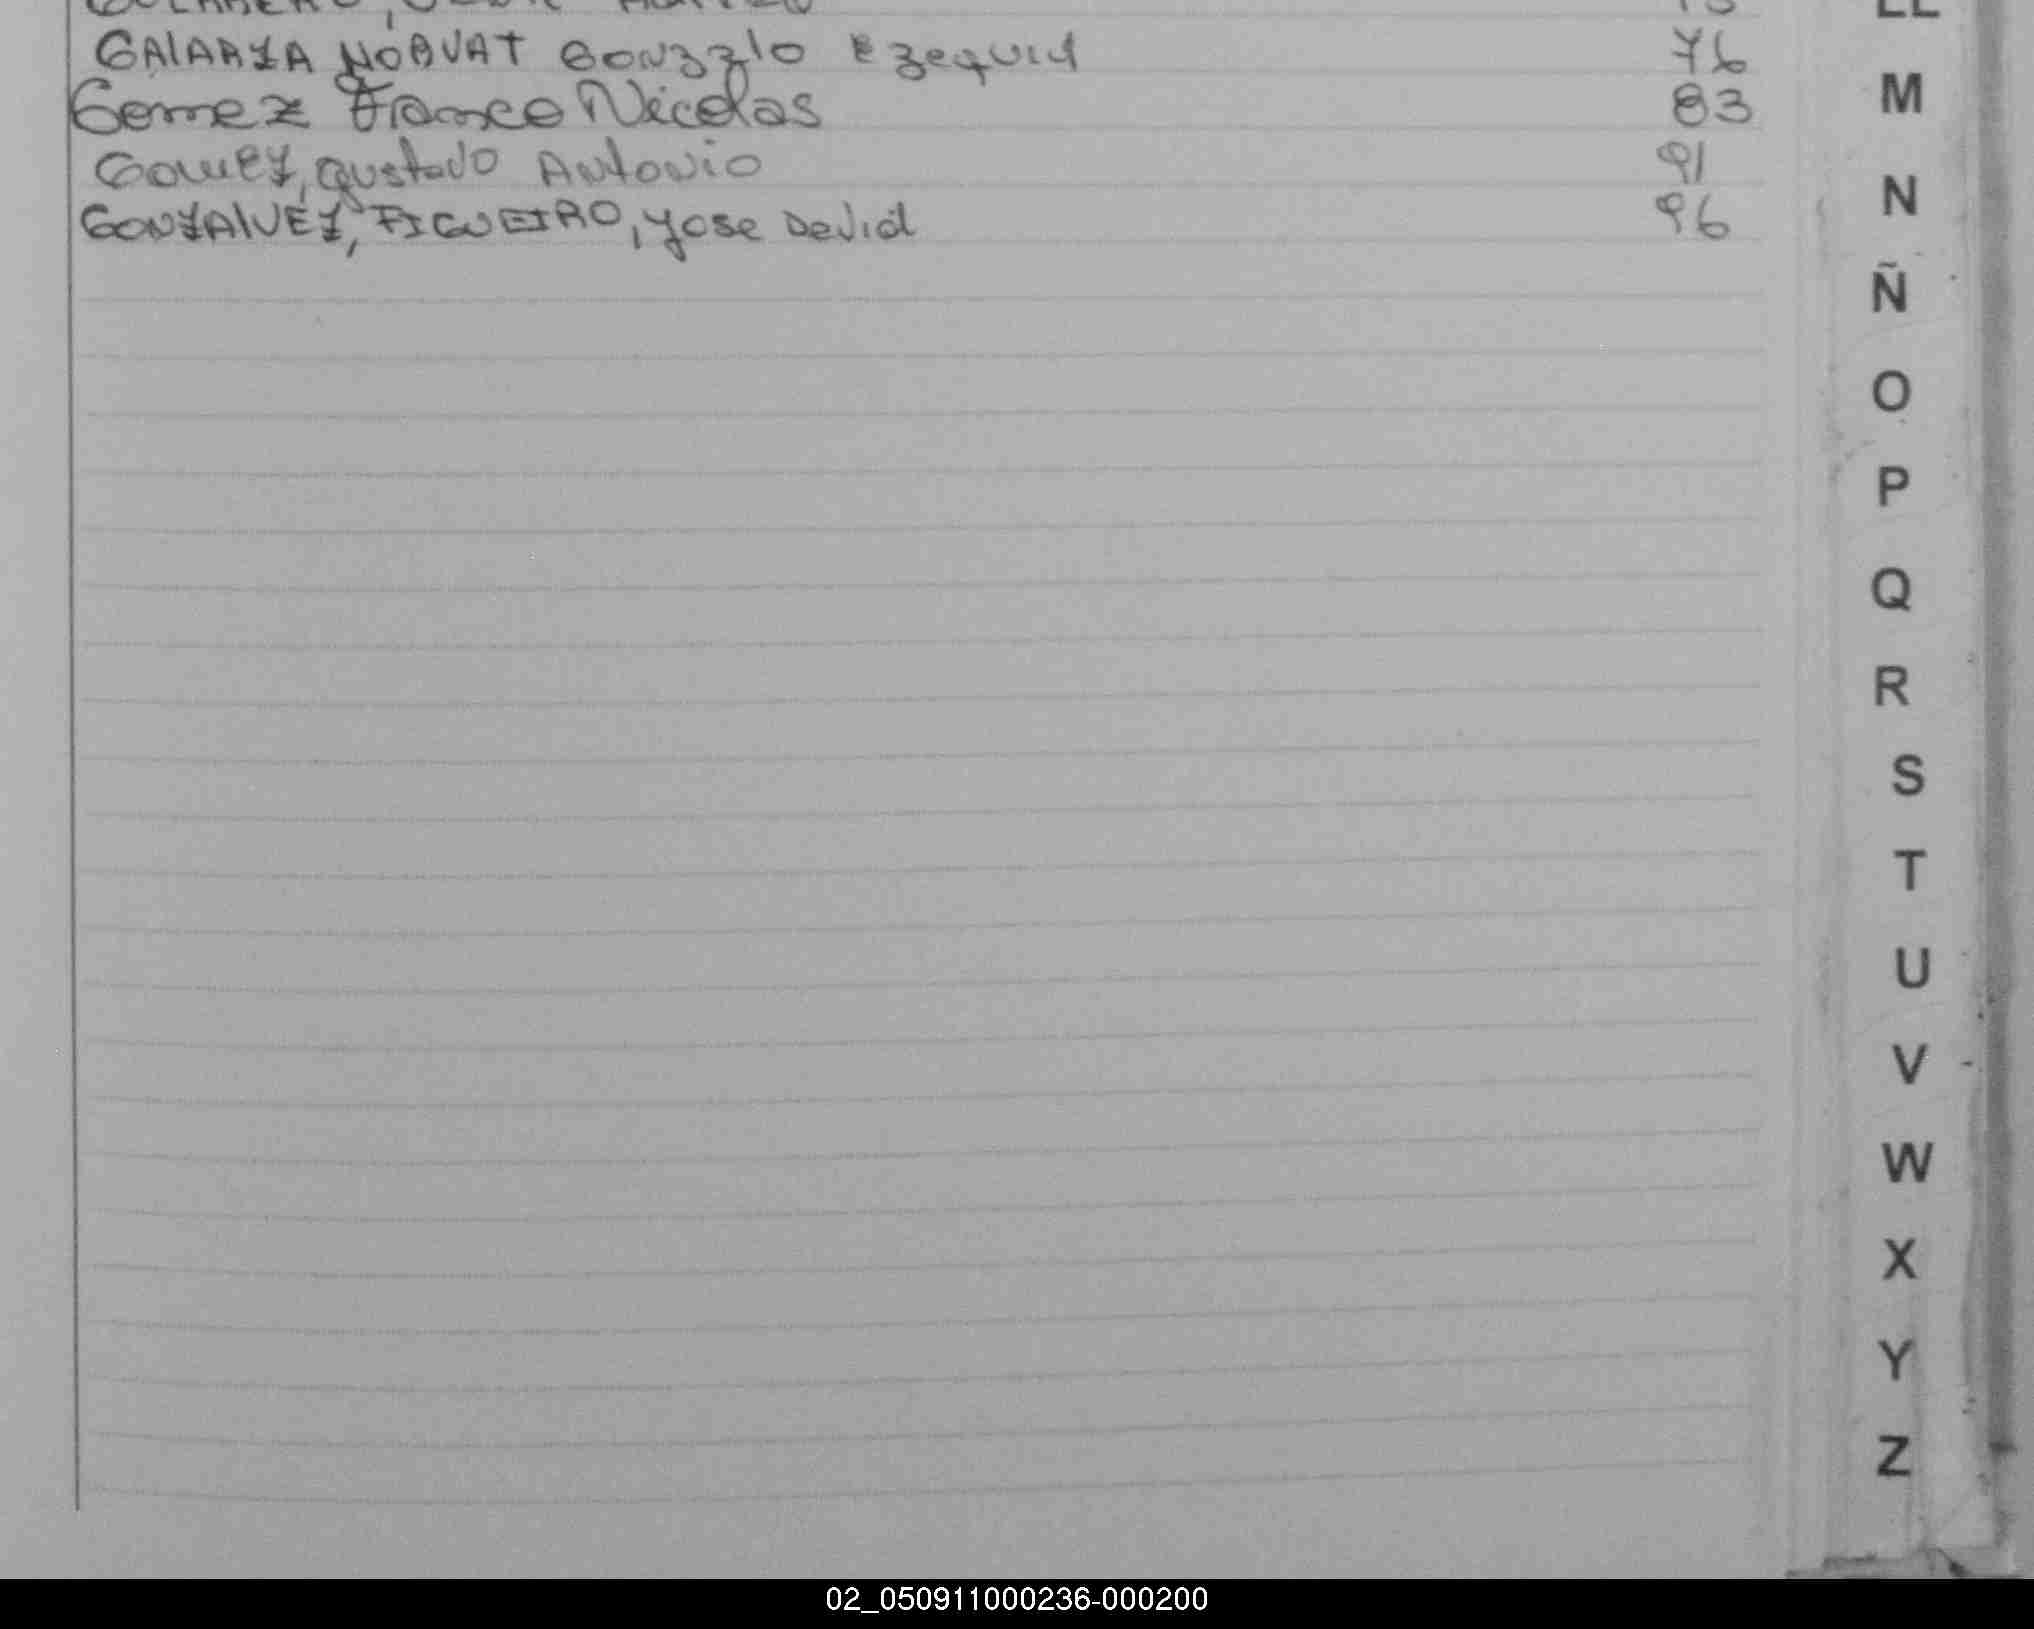 GALARZA NOBUAT Gonzalo Ezequiel 76
Gomez Franco Nicolas 83
Gomez, Gustavo Antonio 91
GONZALVEZ, FIGUEIRO, Jose David 96
LL
M
N
Ñ
O
P
Q
R
S
T
U
V
W
X
Y
Z
02_050911000236-000200